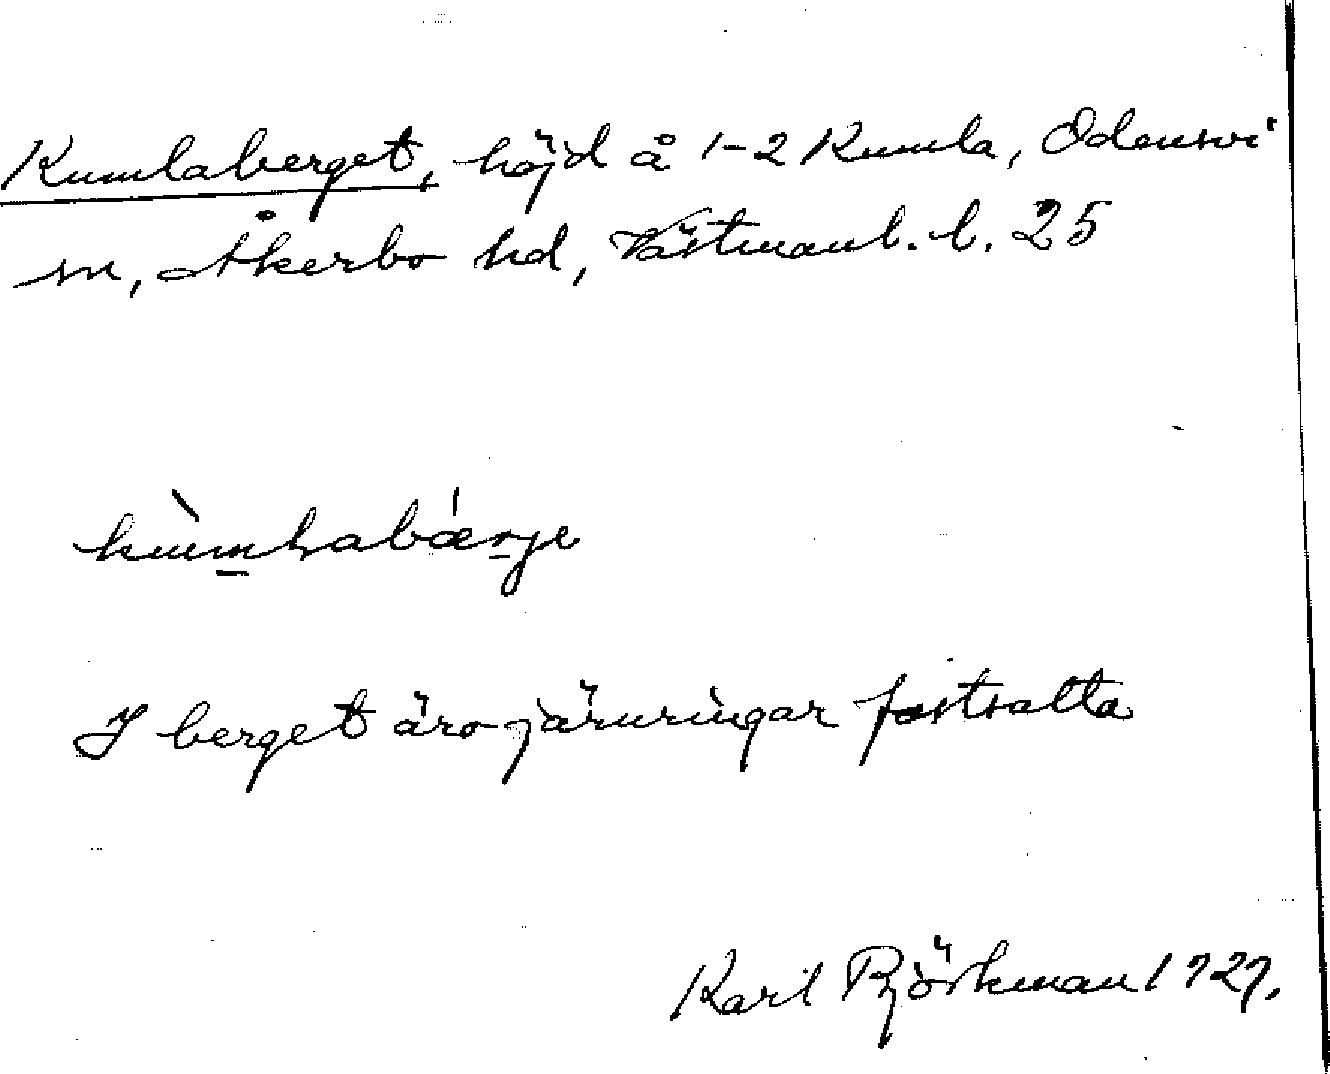 Kumlaberget, höjd å 1-2 Kumla, Odensvi
sn, Åkerbo hd, Västmanl. l. 25
I berget äro järnringar fastsatta
Karl Björkman 1927.